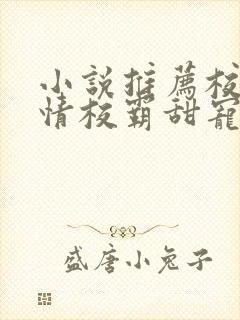 小說推薦校
情校霸甜寵
盛唐小兔子